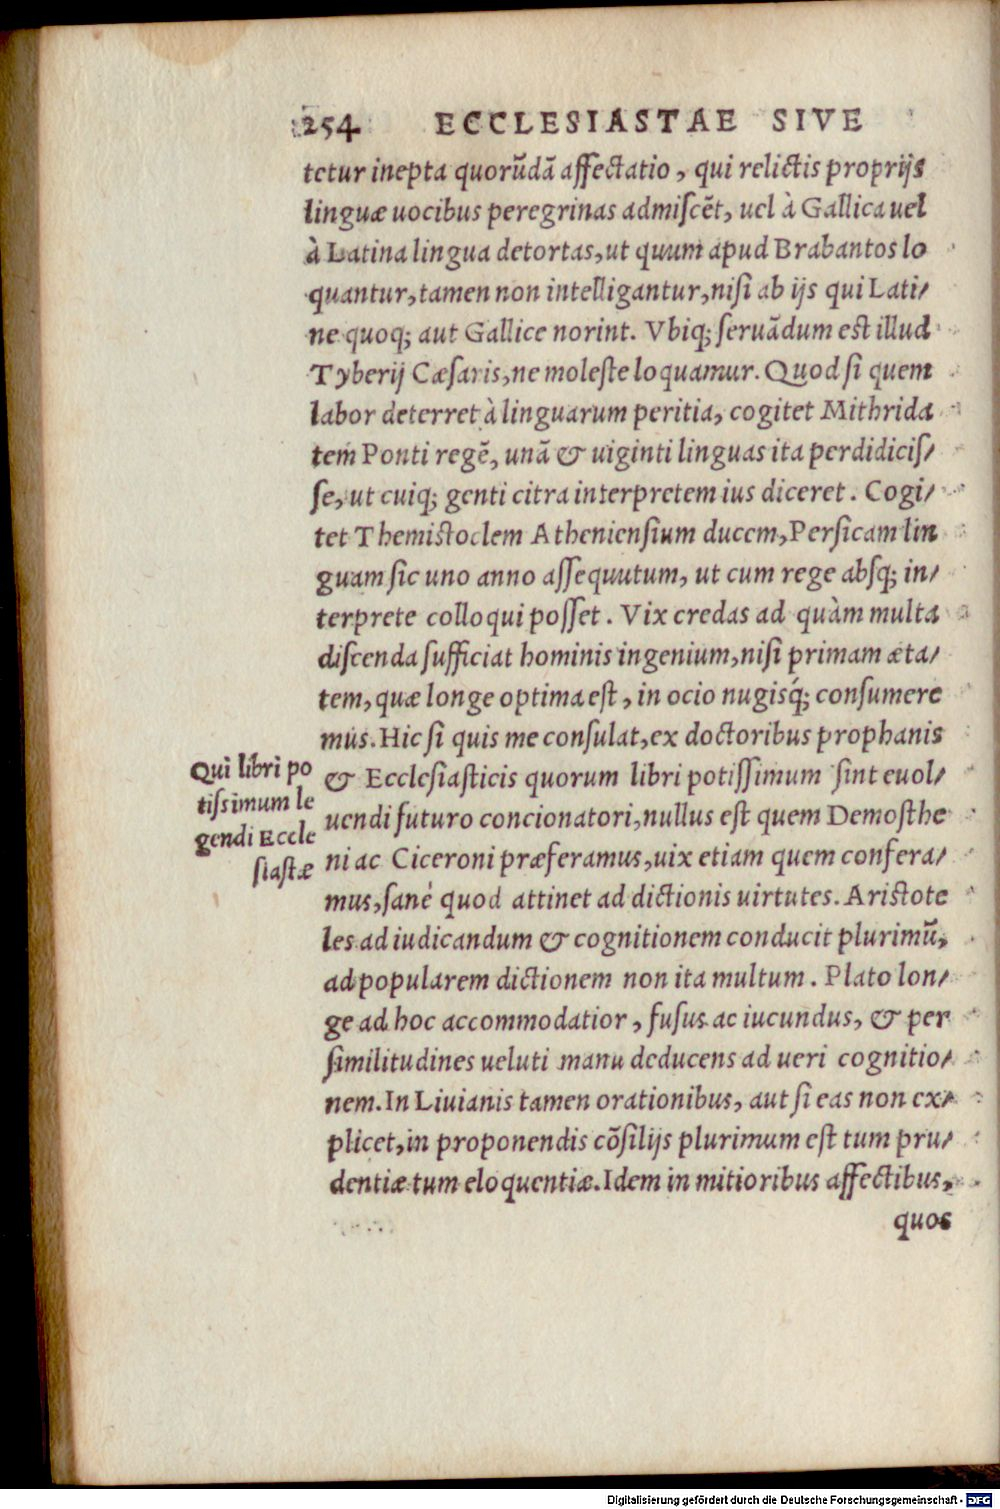 254 ECCLESIASTAE SIVE
tetur inepta quorũdã affectatio, qui relictis proprijs
linguæ uocibus peregrinas admiſcẽt, uel à Gallica uel
à Latina lingua detortas, ut quum apud Brabantos lo
quantur, tamen non intelligantur, niſi ab ijs qui Lati/
ne quoq; aut Gallice norint. Vbiq; ſeruãdum est illud
Tyberij Cæſaris, ne moleſte loquamur. Quod ſi quem
labor deterret à linguarum peritia, cogitet Mithrida
tem Ponti regẽ, unã & uiginti linguas ita perdidiciſ/
ſe, ut cuiq; genti citra interpretem ius diceret. Cogi/
tet Themistoclem Athenienſium ducem, Perſicam lin
guam ſic uno anno aſſequutum, ut cum rege abſq; in/
terprete colloqui poſſet. Vix credas ad quàm multa
diſcenda ſufficiat hominis ingenium, niſi primam æta/
tem, quæ longe optima eſt, in ocio nugisq́; conſumere
mus. Hic ſi quis me conſulat, ex doctoribus prophanis
& Eccleſiaſticis quorum libri potiſſimum ſint euol/
uendi futuro concionatori, nullus eſt quem Demoſthe
ni ac Ciceroni præferamus, uix etiam quem confera/
mus, ſanè quod attinet ad dictionis uirtutes. Aristote
les ad iudicandum & cognitionem conducit plurimũ,
ad popularem dictionem non ita multum. Plato lon/
ge ad hoc accommodatior, fuſus ac iucundus, & per
ſimilitudines ueluti manu deducens ad ueri cognitio/
nem. In Liuianis tamen orationibus, aut ſi eas non ex/
plicet, in proponendis cõſilijs plurimum eſt tum pru/
dentiæ tum eloquentiæ. Idem in mitioribus affectibus,
quos
Qui libri po
tiſsimum le
gendi Eccle
ſiaſtæ
Digitalisierung gefördert durch die Deutsche Forschungsgemeinschaft - DFG